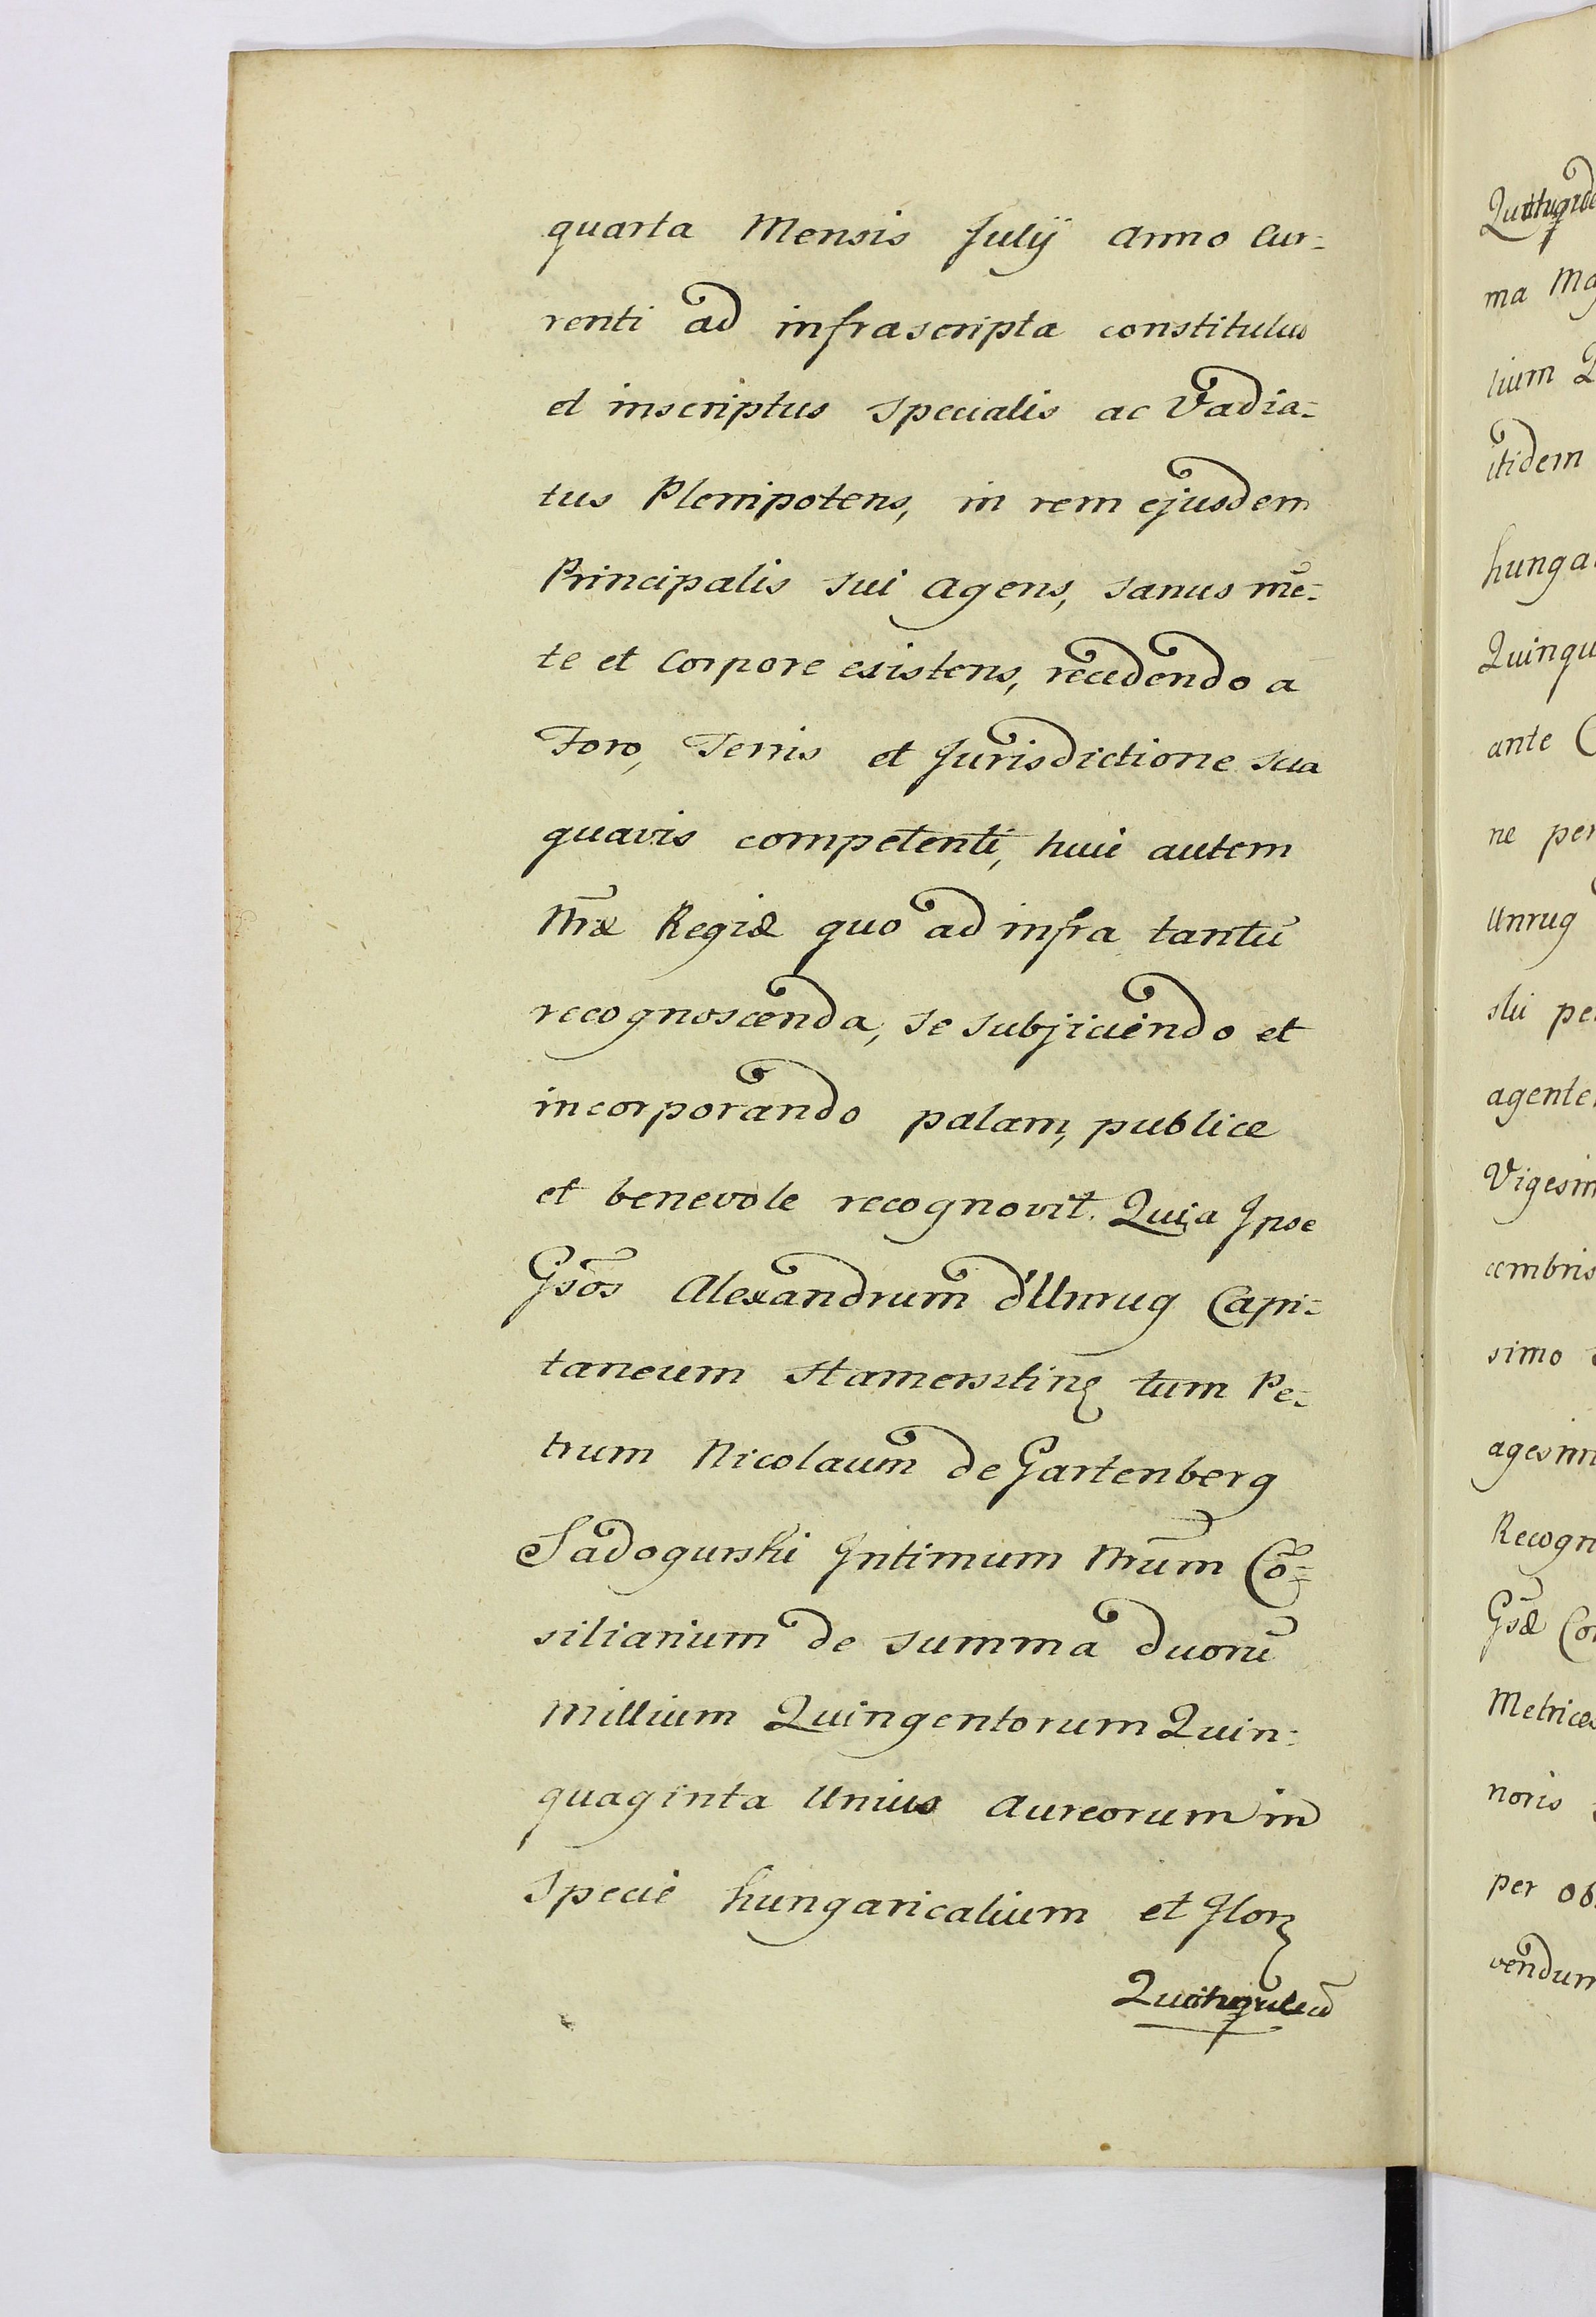 quarta Mensis Julij Anno Cur=
renti ad infrascripta constitutus
et inscriptus specialis ac Vadia=
tus Plenipotens, in rem ejusdem
Principalis sui agens, sanus mē=
te et Corpore existens, recedendo a
Foro, Terris et Jurisdictione sua
quavis competenti, huic autem
Nræ Regiæ quo ad infra tantū
recognoscenda, se subjiciendo et
incorporando palam, publice
et benevole recognovit. Quia Ipse
Gsōs Alexandrum d'Unrug Capi=
taneum Hamersztinẽ tum Pe=
trum Nicolaum de Gartenberg
Sadogurski Intimum Nrūm Cō=
siliarium de summa duorū
Millium Quingentorum Quin=
quaginta Unius Aureorum in
specie hungaricalium et Flor
Quitu
ma Ma
lium Q
itidem
hunga
Quinqu
ante C
ne per
Unrug
ski pe
agente
Vigesim
cembris
simo
agesim
Recogn
Gsæ Co
Metrices
noris
per ob
vendum